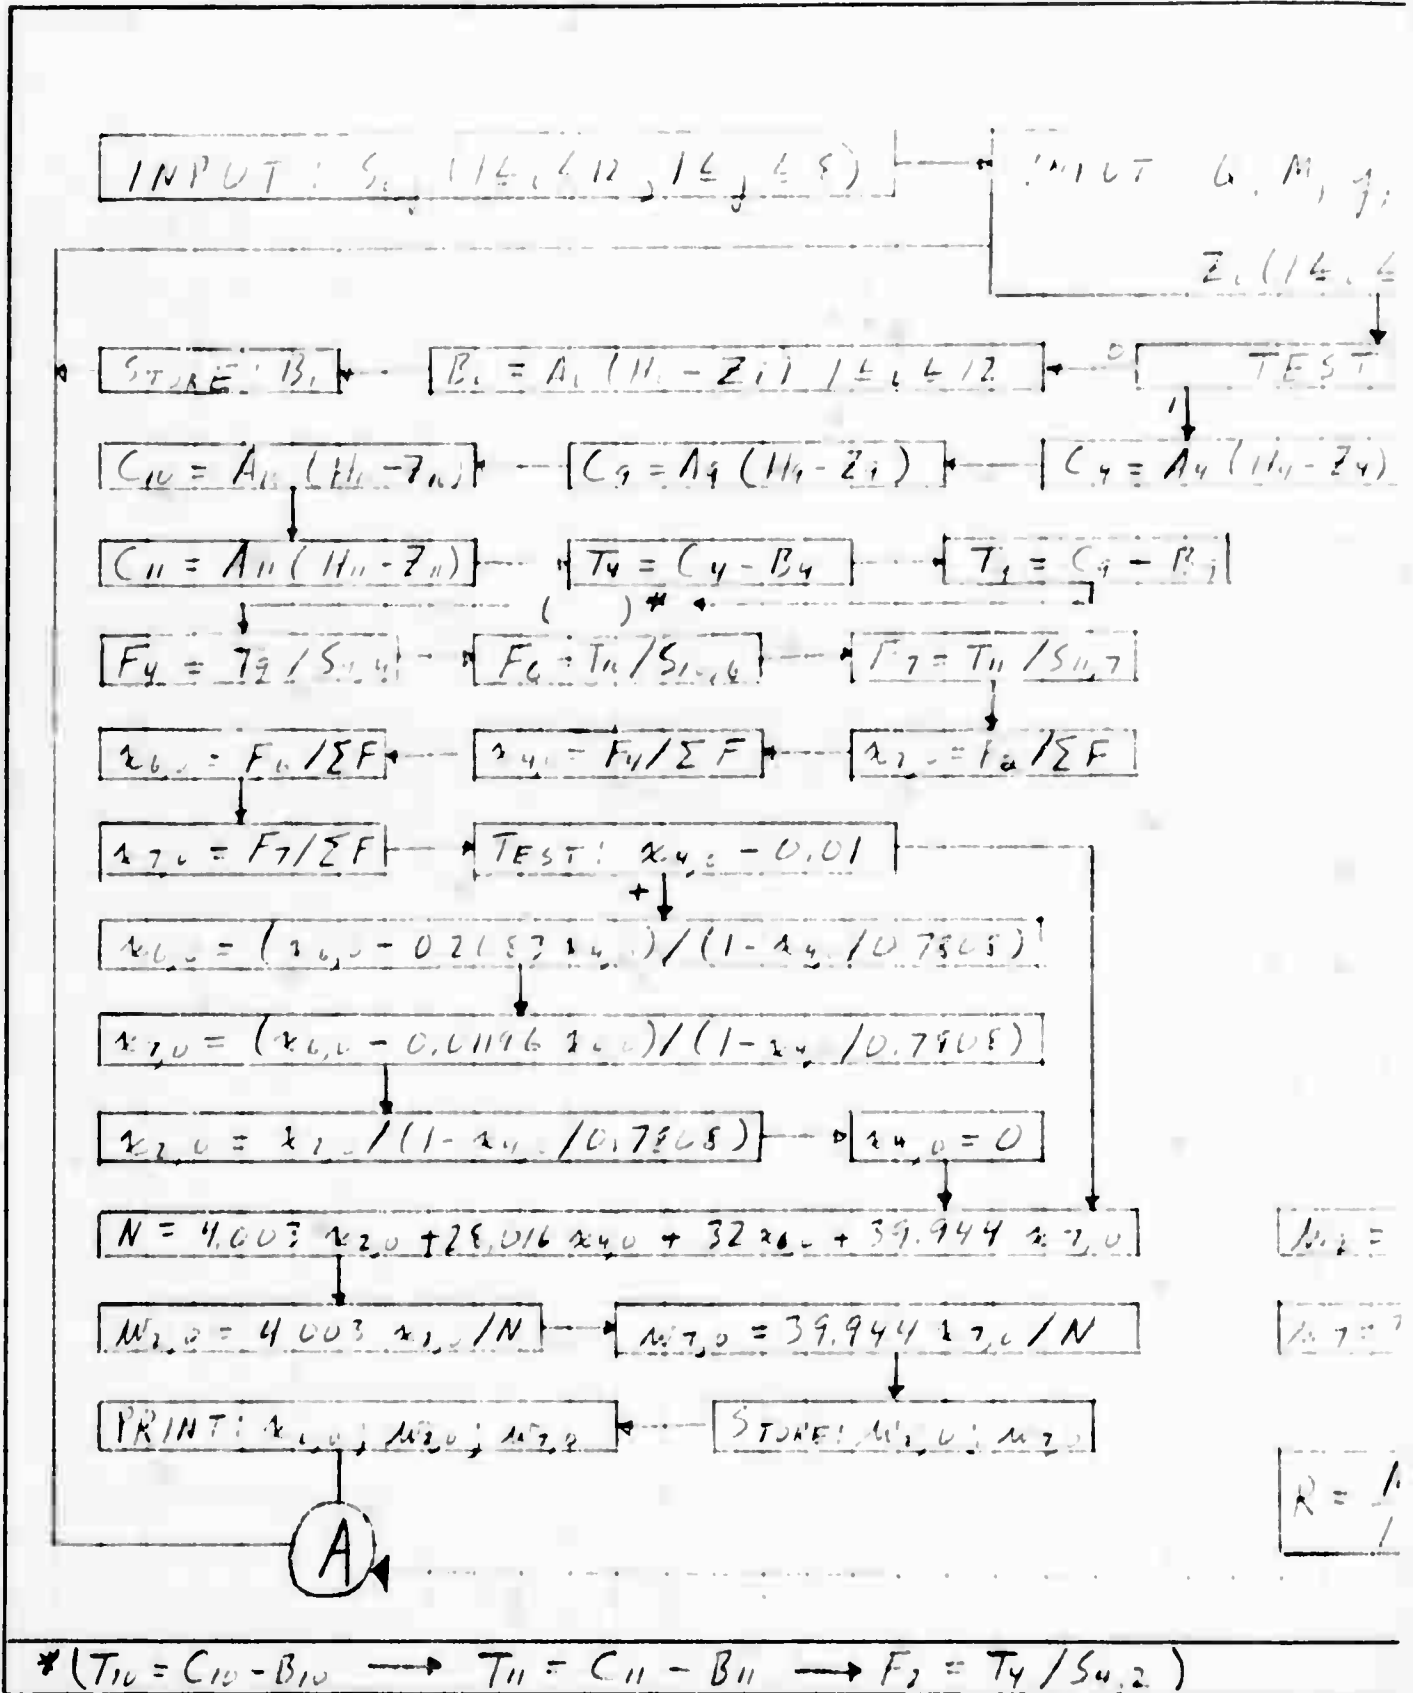 INPUT: S i,j (1≤i≤12, 1≤j≤8) INPUT G, M, g,
Z i (1≤i≤
STORE: Bi Bi = Ai (Hi - Zi) 1≤i≤12 0 TEST
1
C10 = A10 (H10 - Z10) C9 = A9 (H9 - Z9) C4 = A4 (H4 - Z4)
C11 = A11 (H11 - Z11) T4 = C4 - B4 T9 = C9 - B9
( )*
F4 = T9/S9,4 F6 = T10/S10,6 F7 = T11/S11,7
x6,0 = F6/ΣF x4,0 = F4/ΣF x2,0 = F2/ΣF
x7,0 = F7/ΣF TEST: x4,0 - 0.01
+
x6,0 = (x6,0 - 0.2683 x4,0)/(1 - x4,0/0.7808)
x7,0 = (x6,0 - 0.01196 x6,0)/(1 - x4,0/0.7808)
x2,0 = x2,0/(1 - x4,0/0.7808) x4,0 = 0
N = 4.003 x2,0 + 28.016 x4,0 + 32 x6,0 + 39.944 x7,0 w2 =
w2,0 = 4.003 x2,0/N w7,0 = 39.944 x7,0/N w7 =
PRINT: xi,0; w2,0; w7,0 STORE: w2,0; w7,0
R =
A
*(T10 = C10 - B10 → T11 = C11 - B11 → F2 = T4/S4,2)